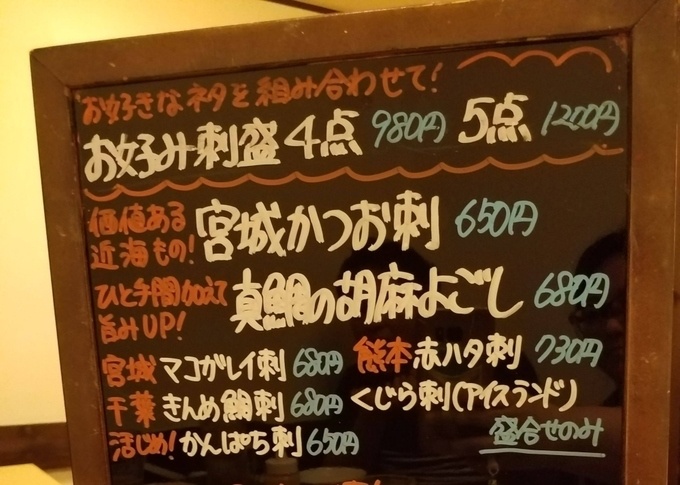 お好きなネタを組み合わせて!
お好み刺盛4点 980円 5点 1200円
価値ある
近海もの! 宮城かつお刺 650円
ひと手間加えて
旨みUP! 真鯛の胡麻よごし 680円
宮城 マコガレイ刺 680円 熊本 赤ハタ刺 730円
千葉 きんめ鯛刺 680円 くじら刺(アイスランド)
活じめ! かんぱち刺 650円 盛合せのみ